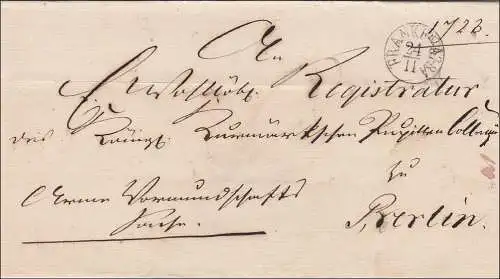 1723.
FRANKFURT
24
11
An
E. Wohllöbl. Registratur
des Königl. Kurmärkschen Pupillen Collegii
zu
Arme Vormundschafts
Sache.
Berlin.